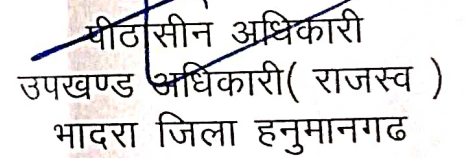 पीठासीन अधिकारी
उपखण्ड अधिकारी( राजस्व )
भादरा जिला हनुमानगढ